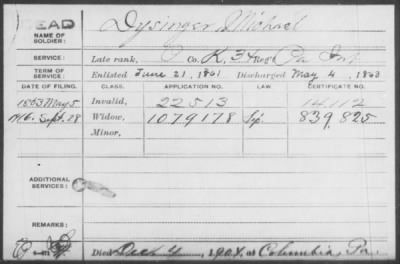 DEAD
NAME OF SOLDIER: Dysinger, Michael
SERVICE: Late rank, Co. K, 34 Reg't Pa Inf
TERM OF SERVICE: Enlisted June 21, 1861 Discharged May 4, 1863
DATE OF FILING. CLASS. APPLICATION NO. LAW CERTIFICATE NO.
1863 May 5. Invalid, 22513 14,112
1916. Sept. 28 Widow, 1079178 839,825
Minor,
ADDITIONAL SERVICES:
REMARKS:
Died Dec 4, 1904, at Columbia, Pa